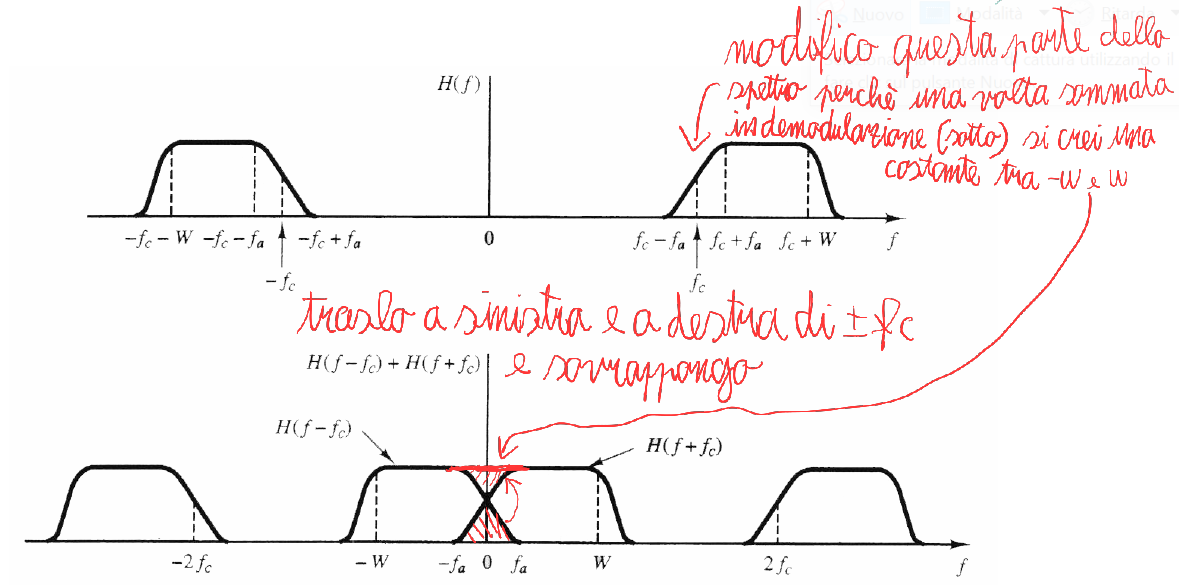 Nuovo Modalità Ritarda
modofico questa parte dello
spettro perchè una volta sommata
in demodulazione (sotto) si crei una
costante tra -w e w
H(f)
-f_c - W -f_c - f_a -f_c + f_a 0 f_c - f_a f_c + f_a f_c + W f
-f_c f_c
traslo a sinistra e a destra di ± fc
e sovrappongo
H(f - f_c) + H(f + f_c)
H(f - f_c)
H(f + f_c)
-2f_c -W -f_a 0 f_a W 2f_c f